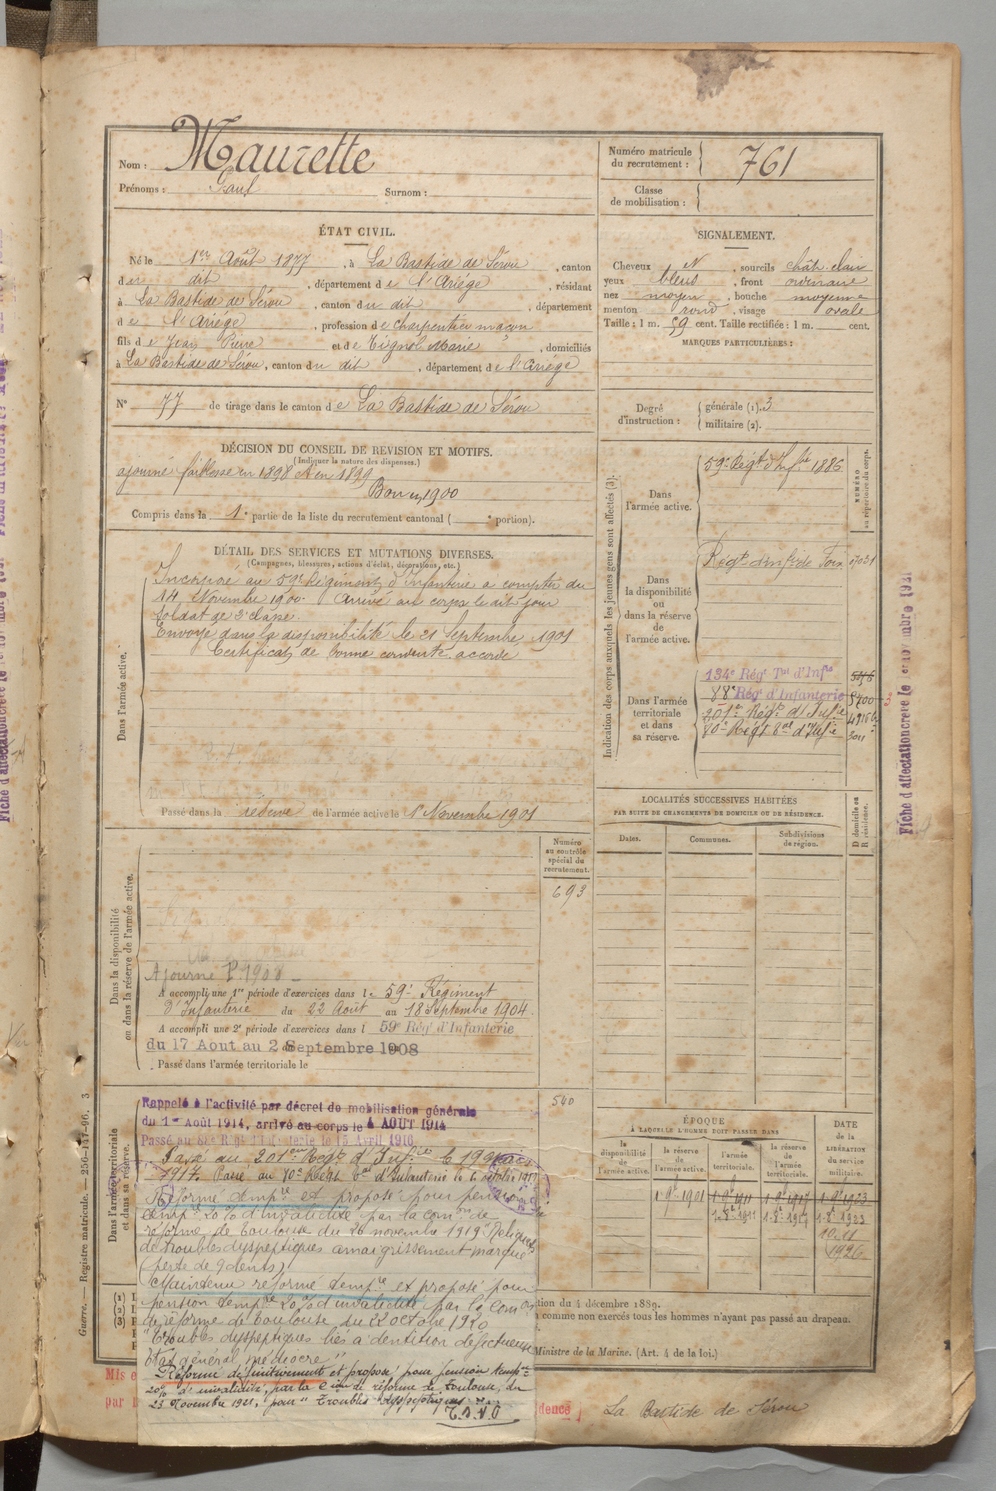 Nom : Maurette
Prénoms : Paul Surnom :
Numéro matricule du recrutement : 761
Classe de mobilisation :
ÉTAT CIVIL.
Né le 1er Août 1877, à La Bastide de Sérou, canton
du dit, département de l'Ariége, résidant
à La Bastide de Sérou, canton du dit, département
de l'Ariége, profession de charpentier maçon
fils de Jean Pierre et de Tignol Marie, domiciliés
à La Bastide de Sérou, canton du dit, département de l'Ariége
N° 77 de tirage dans le canton de La Bastide de Sérou
SIGNALEMENT.
Cheveux N, sourcils chât clair
yeux bleus, front ordinaire
nez moyen, bouche moyenne
menton rond, visage ovale
Taille : 1 m. 59 cent. Taille rectifiée : 1 m. cent.
MARQUES PARTICULIÈRES :
Degré d'instruction : générale (1). 3
militaire (2).
DÉCISION DU CONSEIL DE REVISION ET MOTIFS.
(Indiquer la nature des dispenses.)
ajourné faiblesse en 1898 et en 1899
Bon en 1900
Compris dans la 1e partie de la liste du recrutement cantonal ( e portion).
DÉTAIL DES SERVICES ET MUTATIONS DIVERSES.
(Campagnes, blessures, actions d'éclat, décorations, etc.)
Dans l'armée active.
Incorporé au 59e Régiment d'Infanterie à compter du
14 Novembre 1900. Arrivé au corps le dit jour
Soldat de 2e classe.
Envoyé dans la disponibilité le 21 Septembre 1901
Certificat de bonne conduite accordé
Passé dans la réserve de l'armée active le 1er Novembre 1901
Indication des corps auxquels les jeunes gens sont affectés (3).
NUMÉRO au répertoire du corps.
Dans l'armée active.
59e Régt d'Infie 1886
Dans la disponibilité ou dans la réserve de l'armée active.
Régt d'Infie de Foix
Dans l'armée territoriale et dans sa réserve.
134e Régt Tal d'Infie
88e Régt d'Infanterie 5700
201e Régt d'Infie
80e Régt Tal d'Infie
LOCALITÉS SUCCESSIVES HABITÉES
PAR SUITE DE CHANGEMENTS DE DOMICILE OU DE RÉSIDENCE.
Dates. Communes. Subdivisions de région. D domicile ou R résidence.
Numéro au contrôle spécial du recrutement.
693
Dans la disponibilité ou dans la réserve de l'armée active.
Ajourné P. 1900
A accompli une 1re période d'exercices dans le 59e Régiment
d'Infanterie du 22 Août au 18 Septembre 1904
A accompli une 2e période d'exercices dans l 59e Régt d'Infanterie
du 17 Aout au 2 Septembre 1908
Passé dans l'armée territoriale le
540
Dans l'armée territoriale et dans sa réserve.
Rappelé à l'activité par décret de mobilisation générale
du 1er Août 1914, arrivé au corps le 4 AOUT 1914
Passé au 88e Régt d'Infanterie le 15 Avril 1916
Passé au 201eme Régt d'Infie le
1917. Passé au 80e Régt Tal d'Infanterie le 6 octobre 1917
Réformé tempre et proposé pour pension
tempre 20% d'invalidité par la comon de
réforme de Toulouse du 26 novembre 1919 "Reliquats
de troubles dyspeptiques amaigrissement marqué
(perte de 9 dents)
Maintenu réformé tempre et proposé pour
pension tempre 20% d'invalidité par la Comon
de réforme de Toulouse du 22 octobre 1920
"Troubles dyspeptiques liés a dentition defectueuse
Etat général médiocre"
Réformé définitivement et proposé pour pension tempre
20% d'invalidité, par la Con de réforme de Toulouse, du
23 Novembre 1921, pour "Troubles dyspeptiques"
T.S.V.O
ÉPOQUE
À LAQUELLE L'HOMME DOIT PASSER DANS
la disponibilité de l'armée active. la réserve de l'armée active. l'armée territoriale. la réserve de l'armée territoriale.
DATE de la LIBÉRATION du service militaire.
1 9e 1901 1 9e 1911 1 9e 1917 1 9e 1923
1 8e 1911 1 8e 1917 1 8e 1923
10.11
1926
tion du 4 décembre 1889.
comme non exercés tous les hommes n'ayant pas passé au drapeau.
Ministre de la Marine. (Art. 4 de la loi.)
Mis e
par
dence
La Bastide de Sérou
Guerre. — Registre matricule. — 256-147-06. 3
Fiche d'affectation créée le novembre 1921